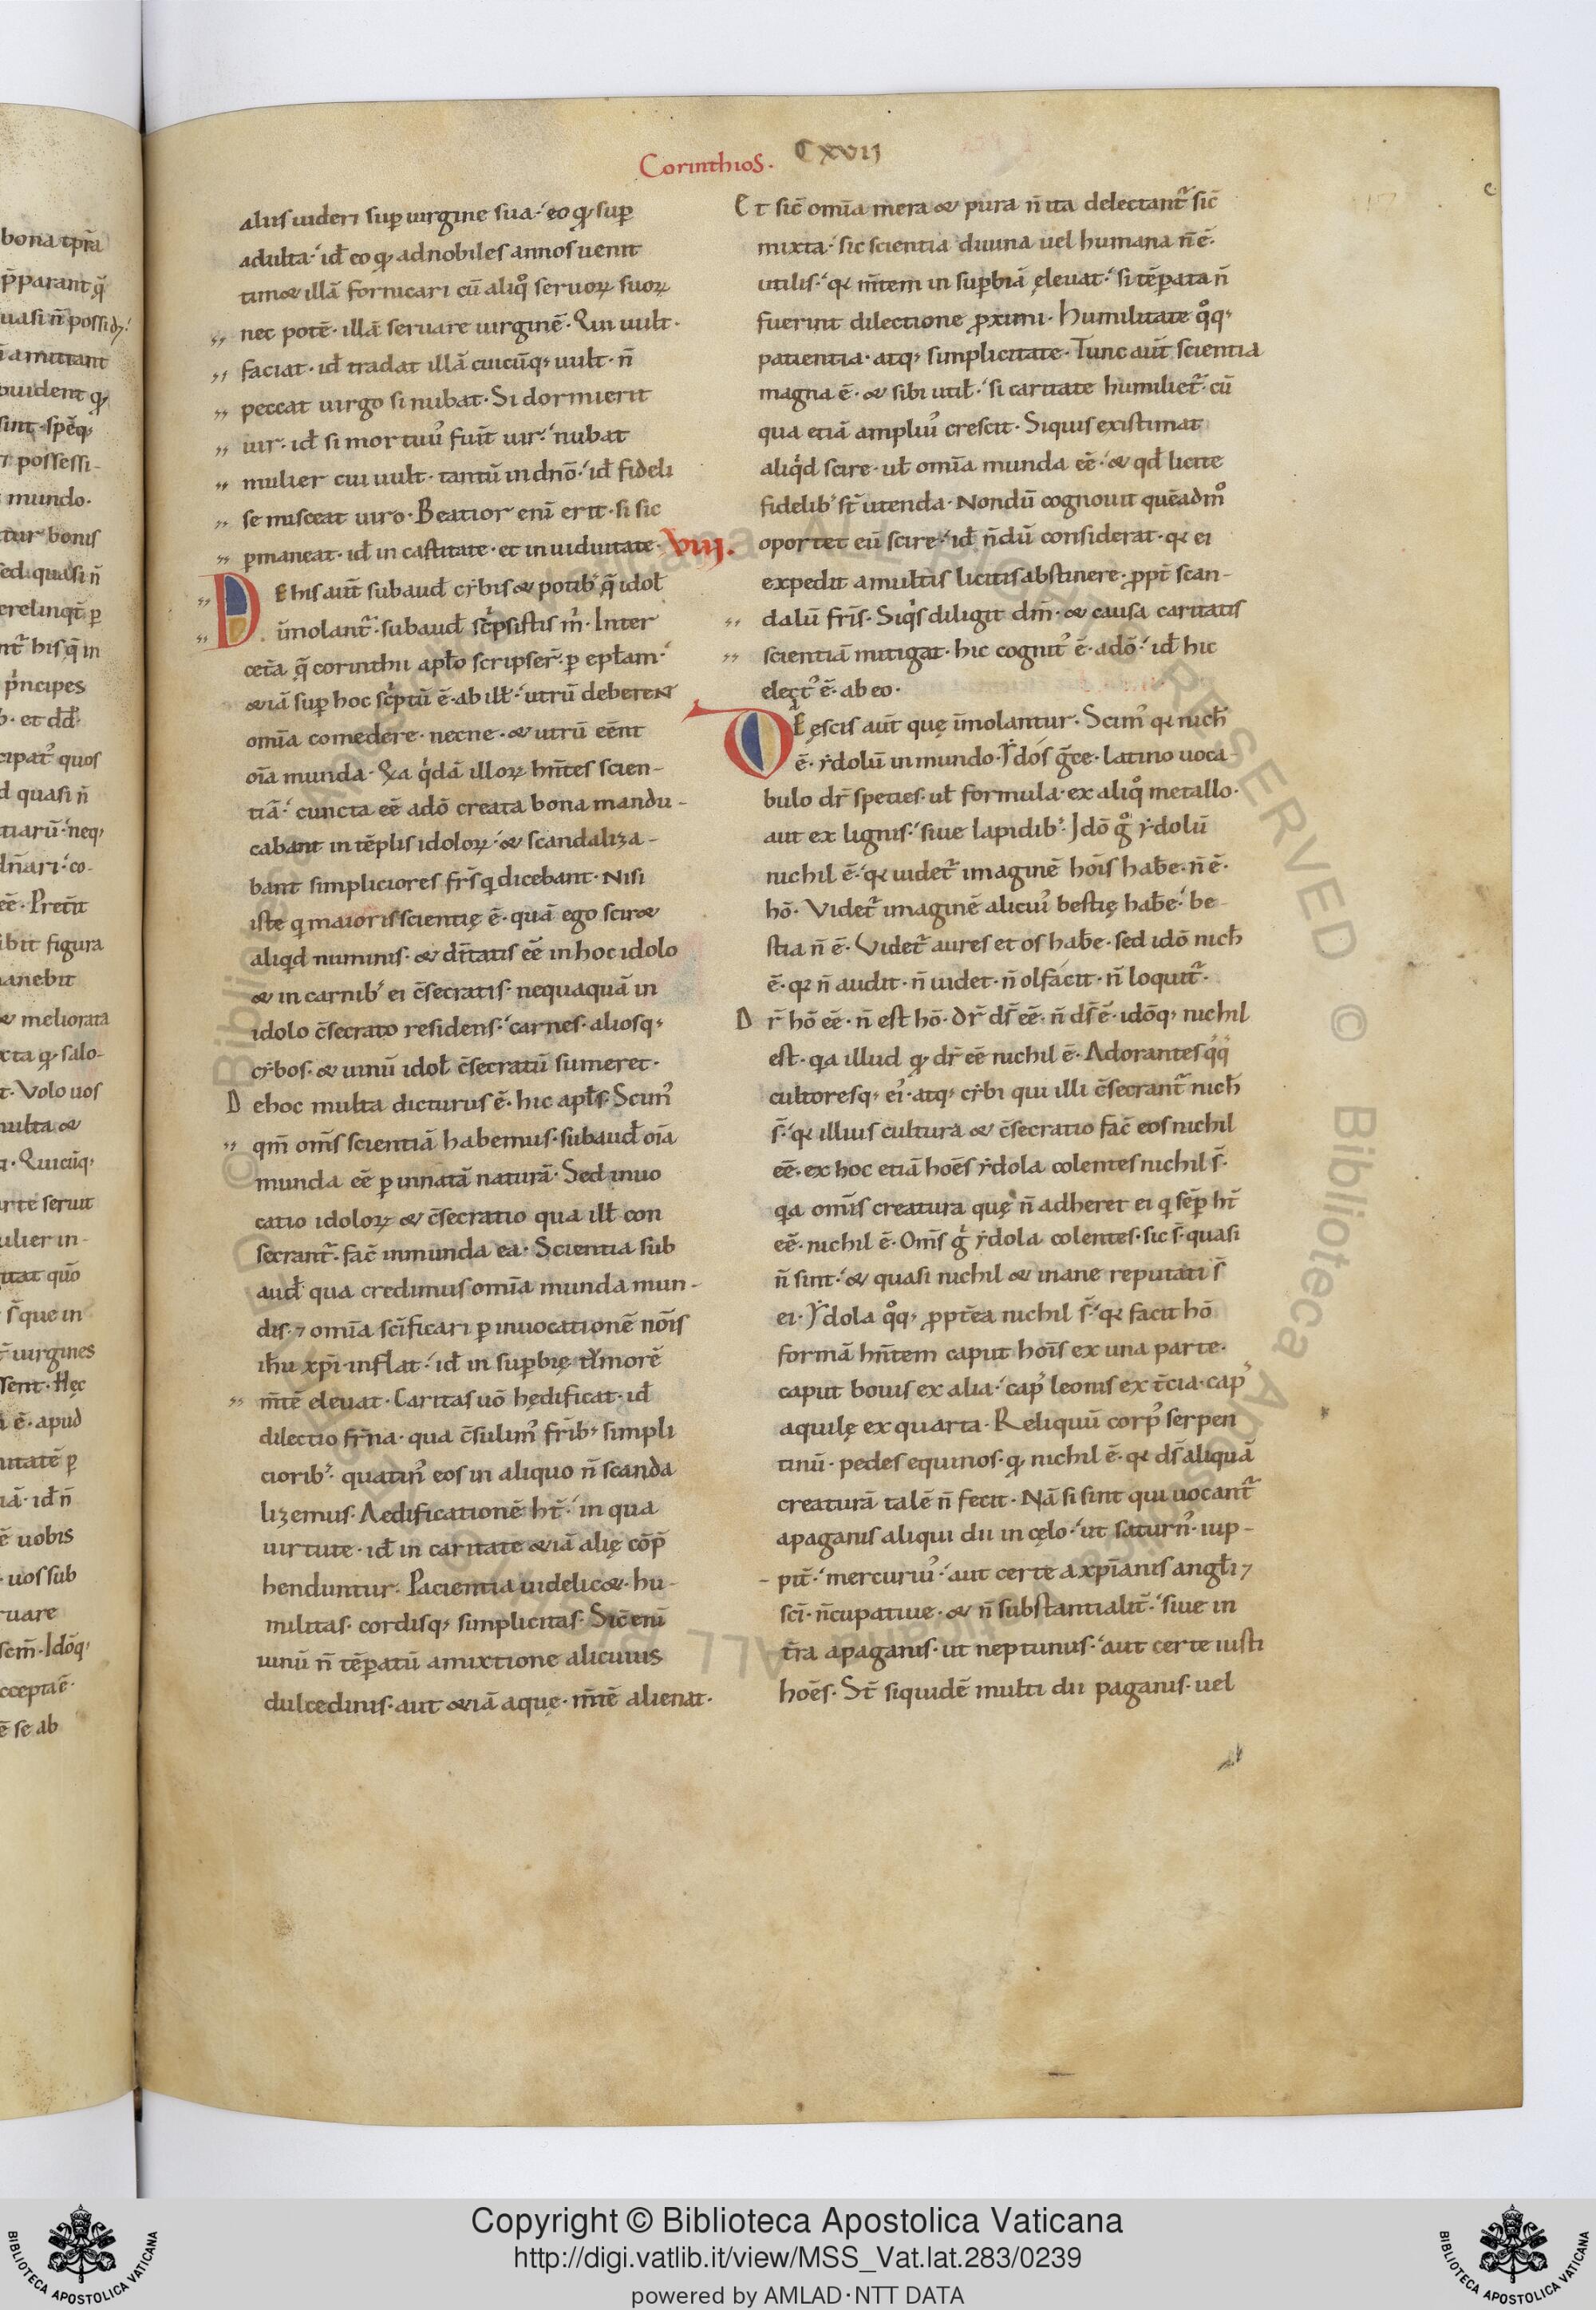 Corinthios. CXVIJ
alius uideri sup̄ uirgine sua. eo ꝙ sup̄
adulta. id̄ eo ꝙ ad nobiles annos uenit
timet illā fornicari cū aliqͦ seruoꝝ suoꝝ
nec potē. illā seruare uirginē. Qui uult.
faciat. id̄ tradat illā cuicūq; uult. n̄
peccat uirgo si nubat. Si dormierit
uir. id̄ si mortuꝰ fuīt uir. nubat
mulier cui uult. tantū in dnō. id̄ fideli
se misceat uiro. Beatior enī erit. si sic
ꝑmaneat. id̄ in castitate. et in uiduitate. VIII.
DE his aut̄ subaud̄ cẏbis & potibꝰ q̄ idol̄
īmolant᷑. subaud̄ sc͛psistis m͛. Inter
cet̄a q̄ corinthii apl̄o scripser̄. ꝑ epl̄am.
& iā sup̄ hoc sc͛ptū ē. ab ill̄. utrū deberent
omīa comedere. necne. & utrū eēnt
oīa munda. Ea q͛dā illoꝝ hn̄tes scien-
tiā. cuncta eē a dō creata bona mandu-
cabant in tēplis idoloꝝ. & scandaliza-
bant simpliciores fr̄s qͥ dicebant. Nisi
iste qͥ maioris scientię ē. quā ego sciret
aliqͥd numinis. & dītatis eē in hoc idolo
& in carnibꝰ ei c̄secratis. nequaquā in
idolo c̄secrato residens. carnes. aliosq;
cẏbos. & uinū idol̄ c̄secratū sumeret.
De hoc multa dicturus ē. hic apl̄s. Scimꝰ
qm̄ om̄s scientiā habemus. subaud̄ oīa
munda eē ꝑ innatā naturā. Sed inuo
catio idoloꝝ & c̄secratio qua ill̄ con
secrant᷑. fac̄ inmunda ea. Scientia sub
aud̄ qua credimus omīa munda mun-
dis. ⁊ omīa sc̄ificari ꝑ inuocationē nōis
ih̄u xp̄i inflat. id̄ in suꝑbię tẏmorē
m̄tē eleuat. Caritas uō hędificat. id̄
dilectio fr̄na. qua c̄sulimꝰ fr̄ib; simpli
cioribꝰ. quatinꝰ eos in aliquo n̄ scanda
lizemus. Aedificationē ht̄. in qua
uirtute. id̄ in caritate & iā alię cōp̄
henduntur. Pacientia uidelicet. hu-
militas. cordisq; simplicitas. Sic̄ enī
uinū n̄ tēꝑatū amixtione alicuius
dulcedinis. aut & iā aque. m̄tē alienat.
Et sic̄ omīa mera & pura n̄ ita delectant᷑ sic̄
mixta. sic scientia diuina uel humana n̄ ē.
utilis. q̄ m̄tem in suꝑbiā ęleuat. si tēꝑata n̄
fuerint dilectione ꝓximi. Humilitate qͦq;
patientia. atq; simplicitate. Tunc aut̄ scientia
magna ē. & sibi util̄. si caritate humiliet᷑. cū
qua etiā ampliꝰ crescit. Siquis existimat
aliqͥd scire. ul̄ omīa munda eē. & qd̄ licite
fidelibꝰ st̄ utenda. Nondū cognouit quēadmͦ
oportet eū scire. id̄ n̄dū considerat. q̄ ei
expedit a multis licitis abstinere. ꝓpt̄ scan-
dalū fr̄is. Siqͥs diligit dm̄. & causa caritatis
scientiā mitigat. hic cognitꝰ ē. a dō. id̄ hic
electꝰ ē. ab eo.
DE ęscis aut̄ quę īmolantur. Scimꝰ q̄ nich̄
ē. ẏdolū in mundo. Ẏdos g̅ce. latino uoca-
bulo dr̄ speties. ul̄ formula. ex aliqͦ metallo.
aut ex lignis. siue lapidibꝰ. Idō gͦ ẏdolū
nichil ē. q̄ uidet᷑ imaginē hōis hab̄e. n̄ ē.
hō. Videt᷑ imaginē alicuiꝰ bestię hab̄e. be-
stia n̄ ē. Videt᷑ aures et os hab̄e. sed idō nich̄
ē. q̄ n̄ audit. n̄ uidet. n̄ olfacit. n̄ loquit᷑.
Dr̄ hō eē. n̄ est hō. Dr̄ ds̄ eē. n̄ ds̄ ē. idōq; nichil
est. qͥa illud ꝙ dr̄ eē nichil ē. Adorantes qͦqͦ
cultoresq; eiꝰ. atq; cẏbi qui illi c̄secrant᷑ nich̄
s̄. q̄ illius cultura & c̄secratio fac̄ eos nichil
eē. ex hoc etiā hoēs ẏdola colentes nichil s̄.
qͥa omīs creatura quę n̄ adheret ei qͥ sēꝑ ht̄
eē. nichil ē. Om̄s g͛ ẏdola colentes. sic s̄. quasi
n̄ sint. & quasi nichil & inane reputati s̄
ei. Ẏdola qͦq; ꝓptēa nichil s̄. q̄ facit hō
formā hn̄tem caput hōis ex una parte.
caput bouis ex alia. capꝰ leonis ex t̄cia. capꝰ
aquilę ex quarta. Reliquū corpꝰ serpen
tinū. pedes equinos. ꝙ nichil ē. q̄ ds̄ aliquā
creaturā talē n̄ fecit. Nā si sint qui uocant᷑
a paganis aliqui dii in cęlo. ut saturnꝰ. iup-
pit̄. mercuriꝰ. aut certe a xp̄ianis angl̄i ⁊
sc̄i. n̄cupatiue. & n̄ substantialit̄. siue in
t̄ra a paganis. ut neptunus. aut certe iusti
hoēs. St̄ siquidē multi dii paganis. uel
Copyright © Biblioteca Apostolica Vaticana
http://digi.vatlib.it/view/MSS_Vat.lat.283/0239
powered by AMLAD·NTT DATA